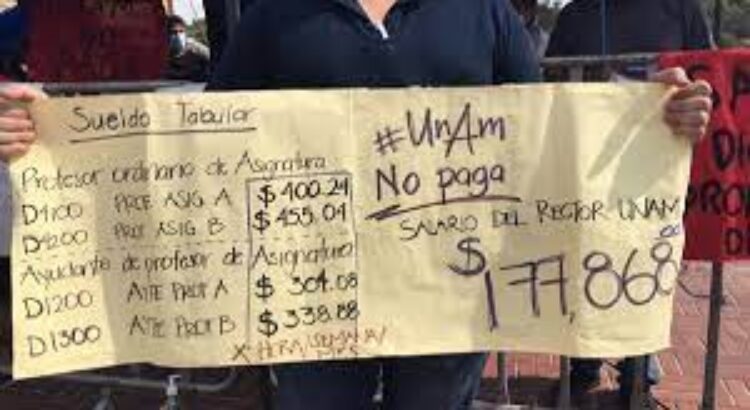 Sueldo Tabular
Profesor ordinario de Asignatura
D4100 PROF ASIG A $ 400.24
D4200 PROF ASIG B $ 455.04
Ayudante de profesor de Asignatura
D1200 AYTE PROF A $ 304.08
D1300 AYTE PROF B $ 338.88
X HORA/SEMANA/MES
#UnAm
No paga
SALARIO DEL RECTOR UNAM
$177,868.00